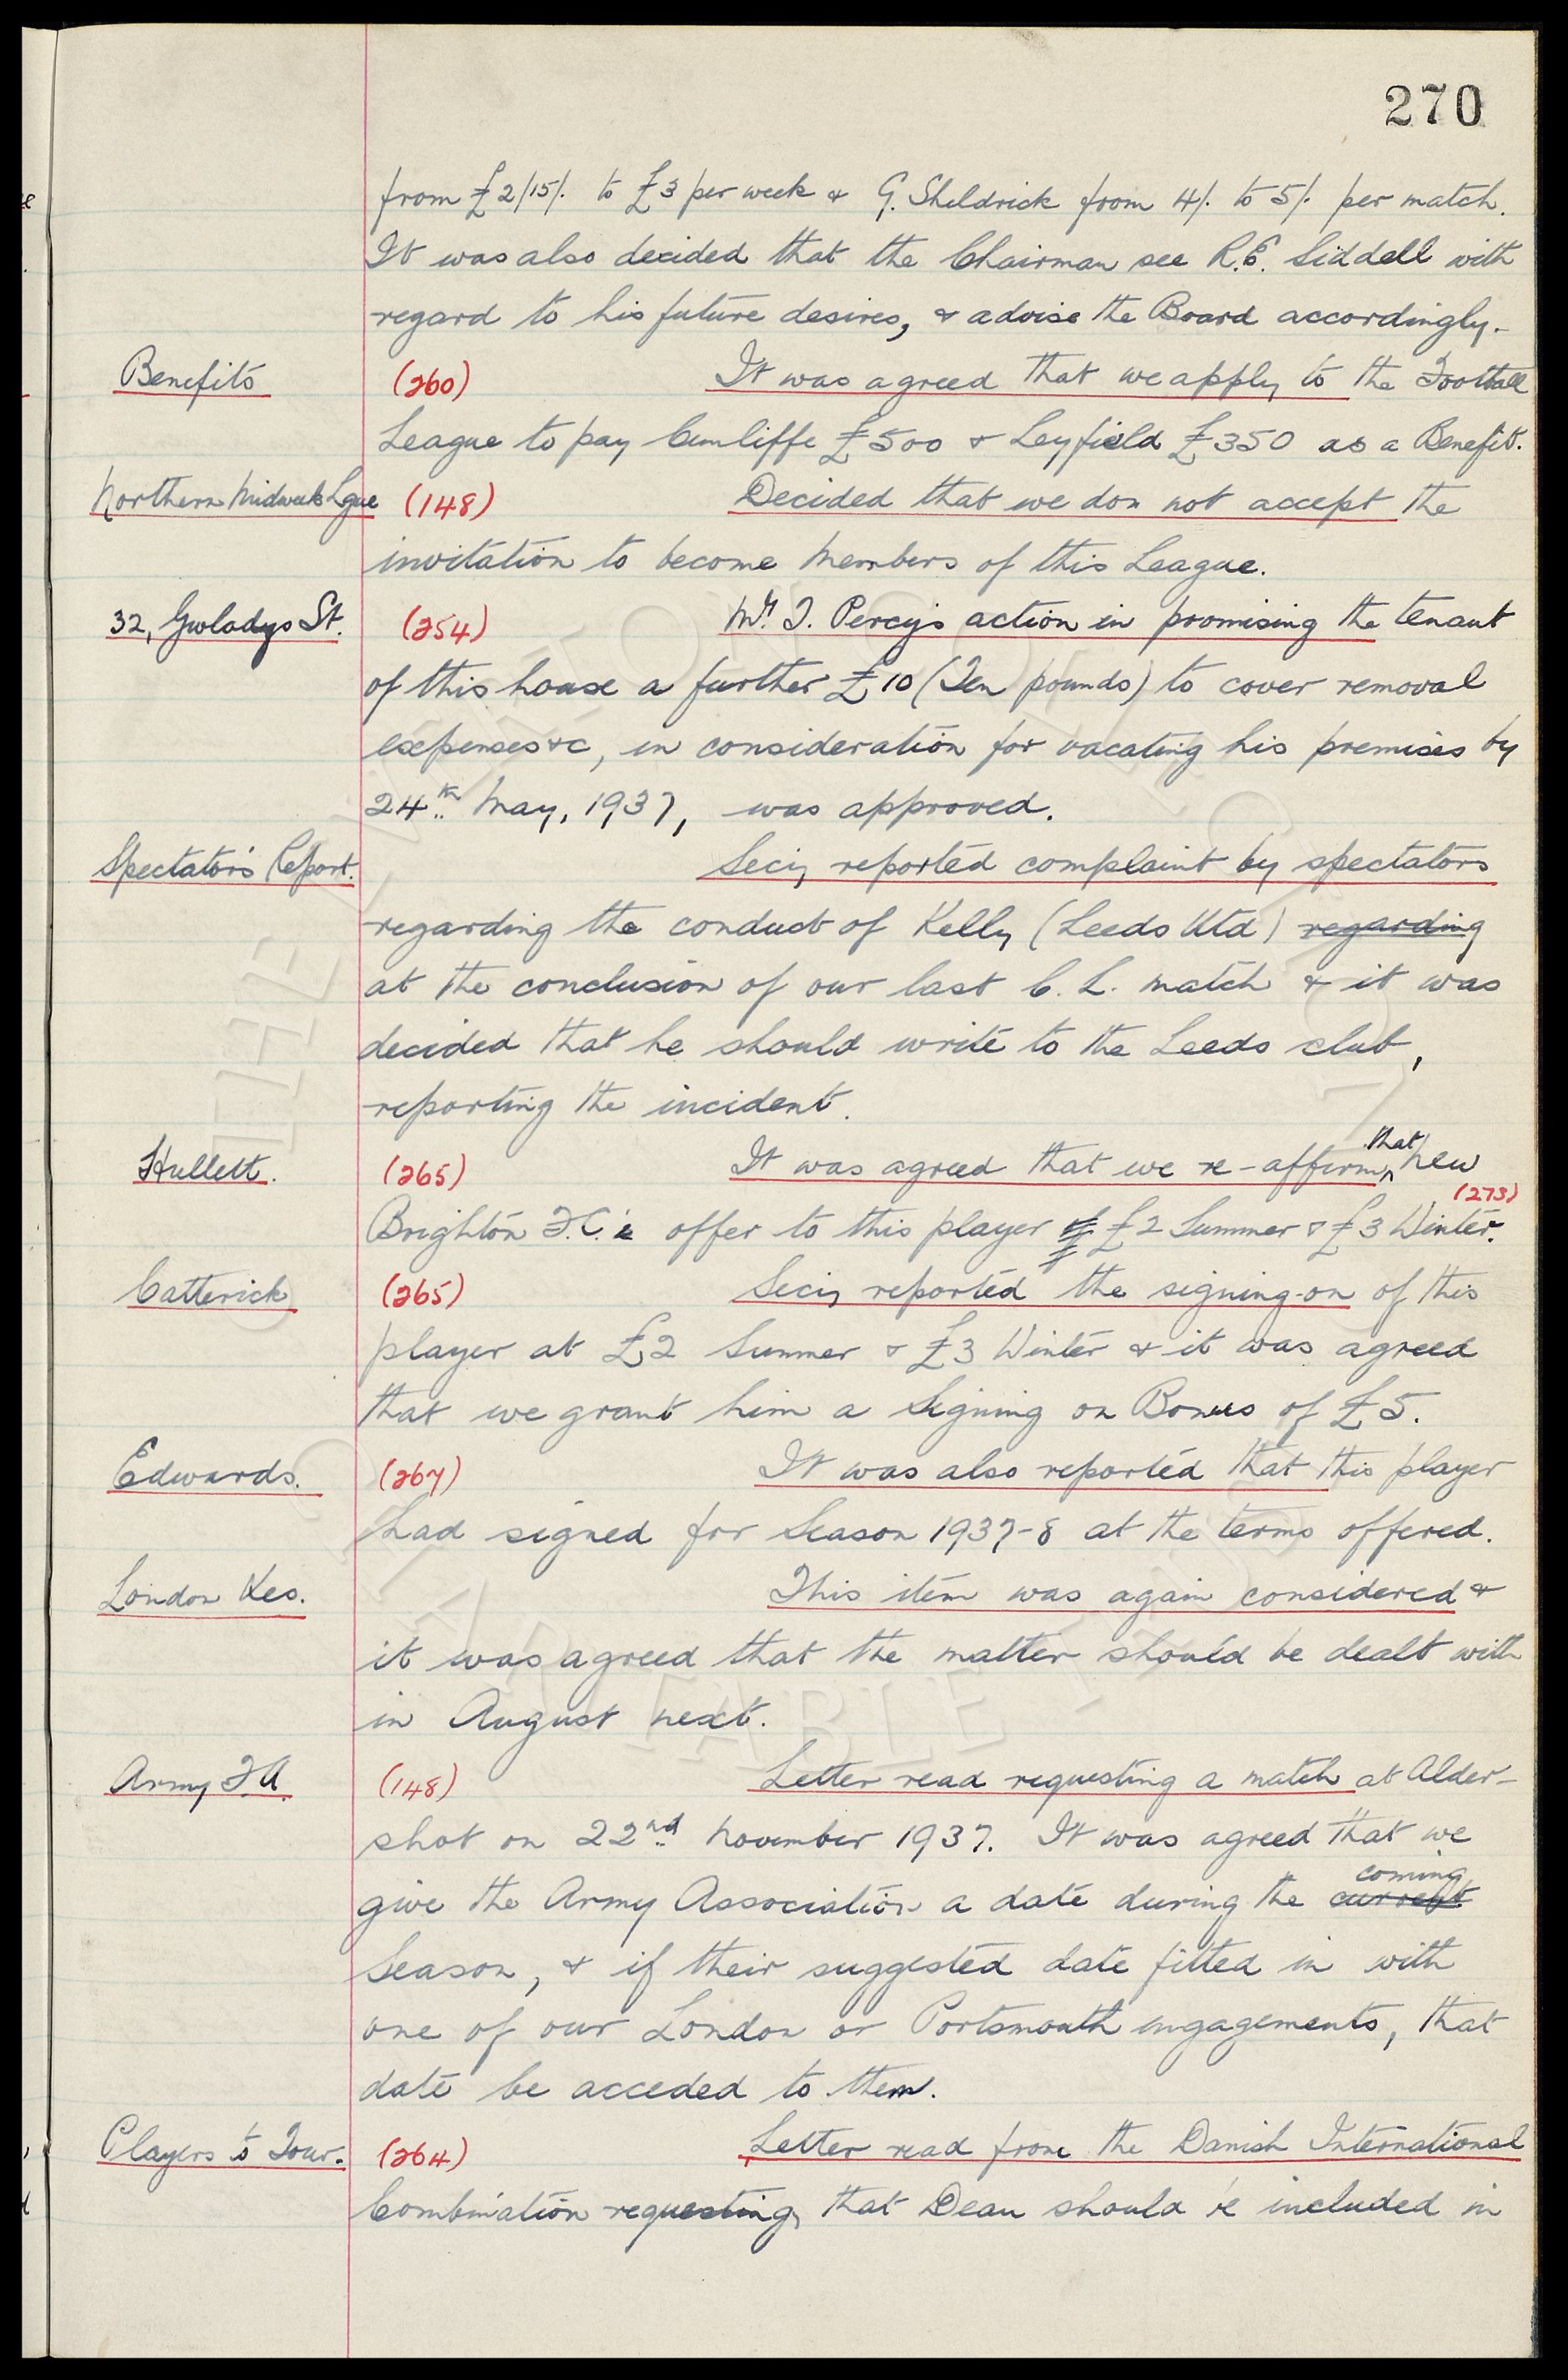 270
from £2/15/. to £3 per week & G. Sheldrick from 4/. to 5/. per match.
It was also decided that the Chairman see R.E. Siddell with
regard to his future desires, & advise the Board accordingly.
Benefits (260) It was agreed that we apply to the Football
League to pay Cunliffe £500 & Leyfield £350 as a Benefit.
Northern Midweek Lgue (148) Decided that we don not accept the
invitation to become Members of this League.
32, Gwladys St. (254) Mr. T. Percy's action in promising the tenant
of this house a further £10 (Ten pounds) to cover removal
expenses &c, in consideration for vacating his premises by
24th May, 1937, was approved.
Spectators Report. Secy reported complaint by spectators
regarding the conduct of Kelly (Leeds Utd) regarding
at the conclusion of our last C. L. match & it was
decided that he should write to the Leeds club,
reporting the incident.
Hullett. (265) It was agreed that we re-affirm that New
(273)
Brighton F.C.'s offer to this player of £2 Summer & £3 Winter.
Catterick (265) Secy reported the signing-on of this
player at £2 Summer & £3 Winter & it was agreed
that we grant him a Signing on Bonus of £5.
Edwards. (267) It was also reported that this player
had signed for Season 1937-8 at the terms offered.
London Res. This item was again considered &
it was agreed that the matter should be dealt with
in August next.
Army F.A. (148) Letter read requesting a match at Alder-
shot on 22nd November 1937. It was agreed that we
coming
give the Army Association a date during the current
Season, & if their suggested date fitted in with
one of our London or Portsmouth engagements, that
date be acceded to them.
Players to Tour. (264) Letter read from the Danish International
Combination requesting that Dean should be included in